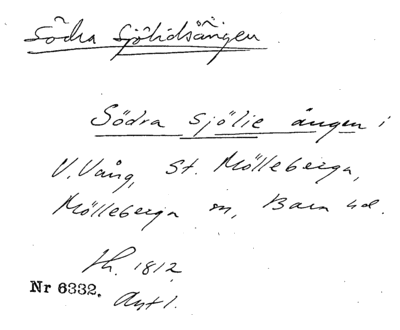 Södra Sjölidsängen
Södra Sjölie ängen i
V. Vång, St. Mölleberga,
Mölleberga sn, Bara hd.
1812
Nr 6332.